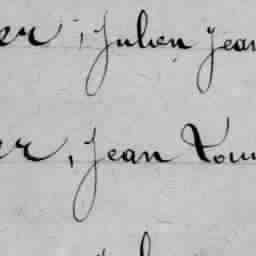 er, Julien Jean
er, Jean Lou